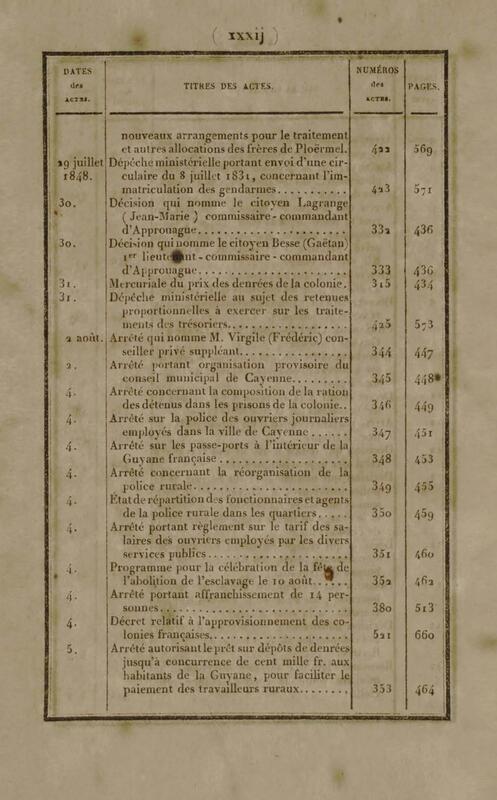 ( lxxij )
DATES des ACTES. TITRES DES ACTES. NUMÉROS des ACTES. PAGES.
nouveaux arrangements pour le traitement
et autres allocations des frères de Ploërmel. 422 569
29 juillet Dépêche ministérielle portant envoi d'une cir-
1848. culaire du 8 juillet 1831, concernant l'im-
matriculation des gendarmes........... 423 571
30. Décision qui nomme le citoyen Lagrange
(Jean-Marie) commissaire-commandant
d'Approuague...................... 332 436
30. Décision qui nomme le citoyen Besse (Gaëtan)
1er lieutenant-commissaire-commandant
d'Approuague...................... 333 436
31. Mercuriale du prix des denrées de la colonie. 315 434
31. Dépêche ministérielle au sujet des retenues
proportionnelles à exercer sur les traite-
ments des trésoriers.................. 425 573
2 août. Arrêté qui nomme M. Virgile (Frédéric) con-
seiller privé suppléant................ 344 447
2. Arrêté portant organisation provisoire du
conseil municipal de Cayenne......... 345 448
4. Arrêté concernant la composition de la ration
des détenus dans les prisons de la colonie.. 346 449
4. Arrêté sur la police des ouvriers journaliers
employés dans la ville de Cayenne ...... 347 451
4. Arrêté sur les passe-ports à l'intérieur de la
Guyane française.................... 348 453
4. Arrêté concernant la réorganisation de la
police rurale........................ 349 455
4. État de répartition des fonctionnaires et agents
de la police rurale dans les quartiers..... 350 459
4. Arrêté portant règlement sur le tarif des sa-
laires des ouvriers employés par les divers
services publics..................... 351 460
4. Programme pour la célébration de la fête de
l'abolition de l'esclavage le 10 août...... 352 462
4. Arrêté portant affranchissement de 14 per-
sonnes............................ 380 513
4. Décret relatif à l'approvisionnement des co-
lonies françaises..................... 521 660
5. Arrêté autorisant le prêt sur dépôts de denrées
jusqu'à concurrence de cent mille fr. aux
habitants de la Guyane, pour faciliter le
paiement des travailleurs ruraux........ 353 464